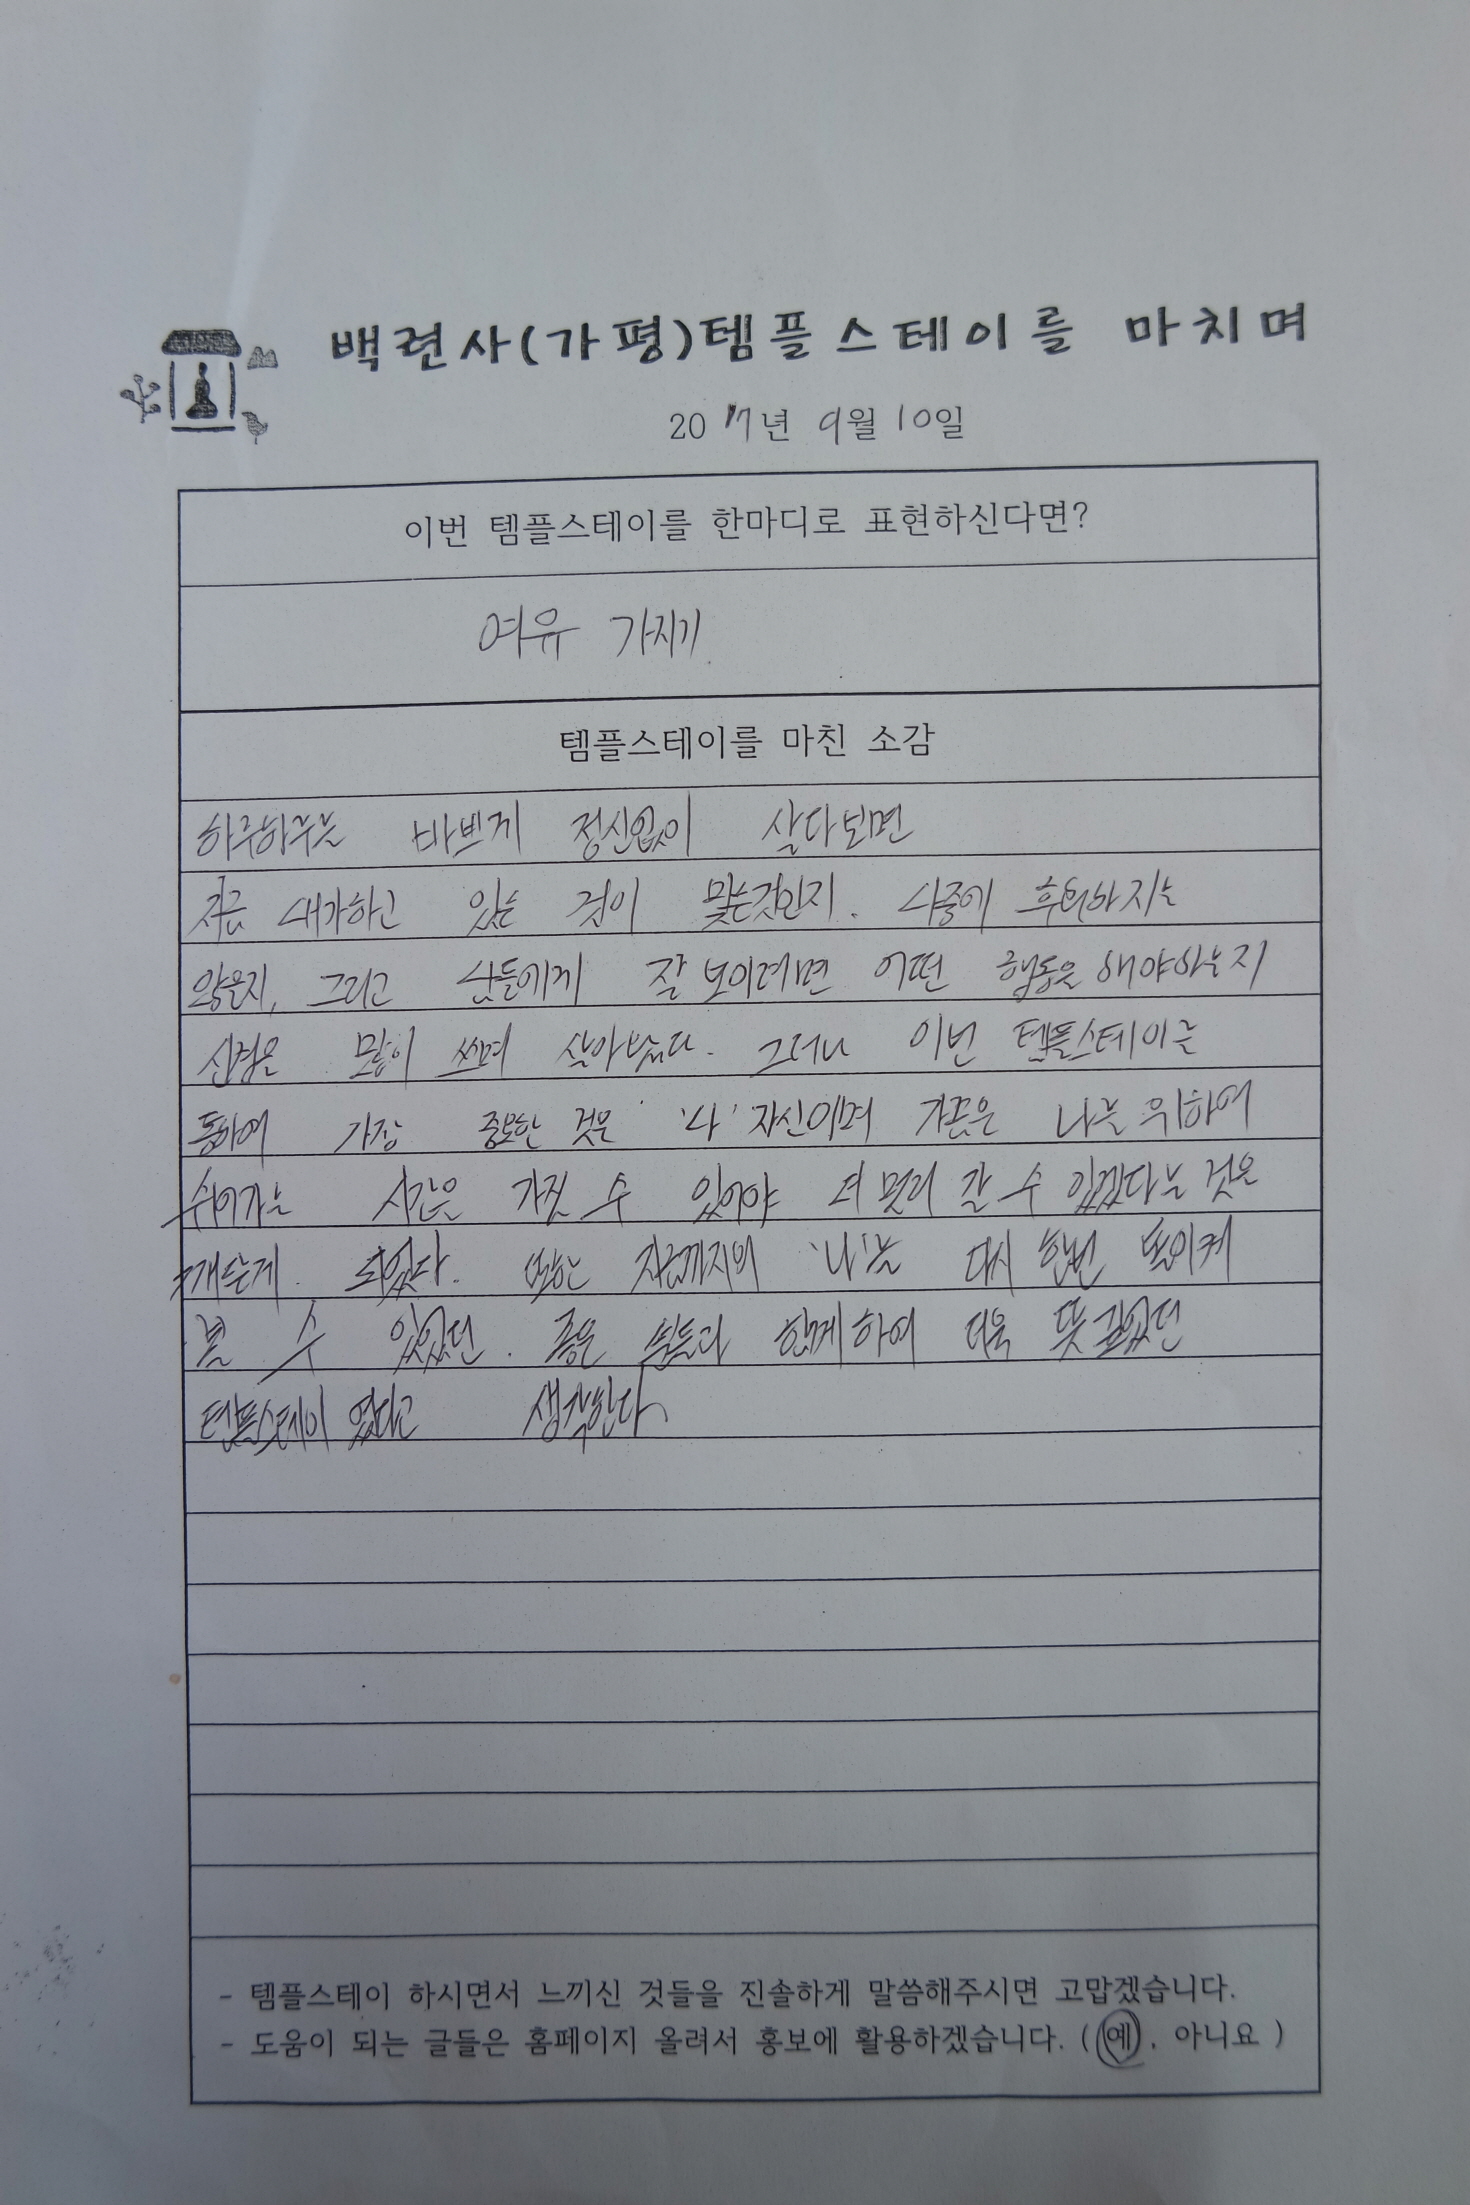 백련사(가평)템플스테이를 마치며
2017년 9월 10일
이번 템플스테이를 한마디로 표현하신다면?
여유 가지기
템플스테이를 마친 소감
하루하루를 바쁘게 정신없이 살다보면
지금 내가하고 있는 것이 맞는것인지. 나중에 후회하지는
않을지, 그리고 남들에게 잘 보이려면 어떤 행동을 해야하는지
신경을 많이 쓰며 살아왔다. 그러나 이번 템플스테이를
통하여 가장 중요한 것은 '나' 자신이며 가끔은 나를 위하여
쉬어가는 시간을 가질 수 있어야 더 멀리 갈 수 있겠다는 것을
깨닫게 되었다. 또한 지금까지의 '나'를 다시 한번 돌이켜
볼 수 있었던. 좋은 분들과 함께하여 더욱 뜻 깊었던
템플스테이 였다고 생각한다.
- 템플스테이 하시면서 느끼신 것들을 진솔하게 말씀해주시면 고맙겠습니다.
- 도움이 되는 글들은 홈페이지 올려서 홍보에 활용하겠습니다. ( 예 , 아니요 )